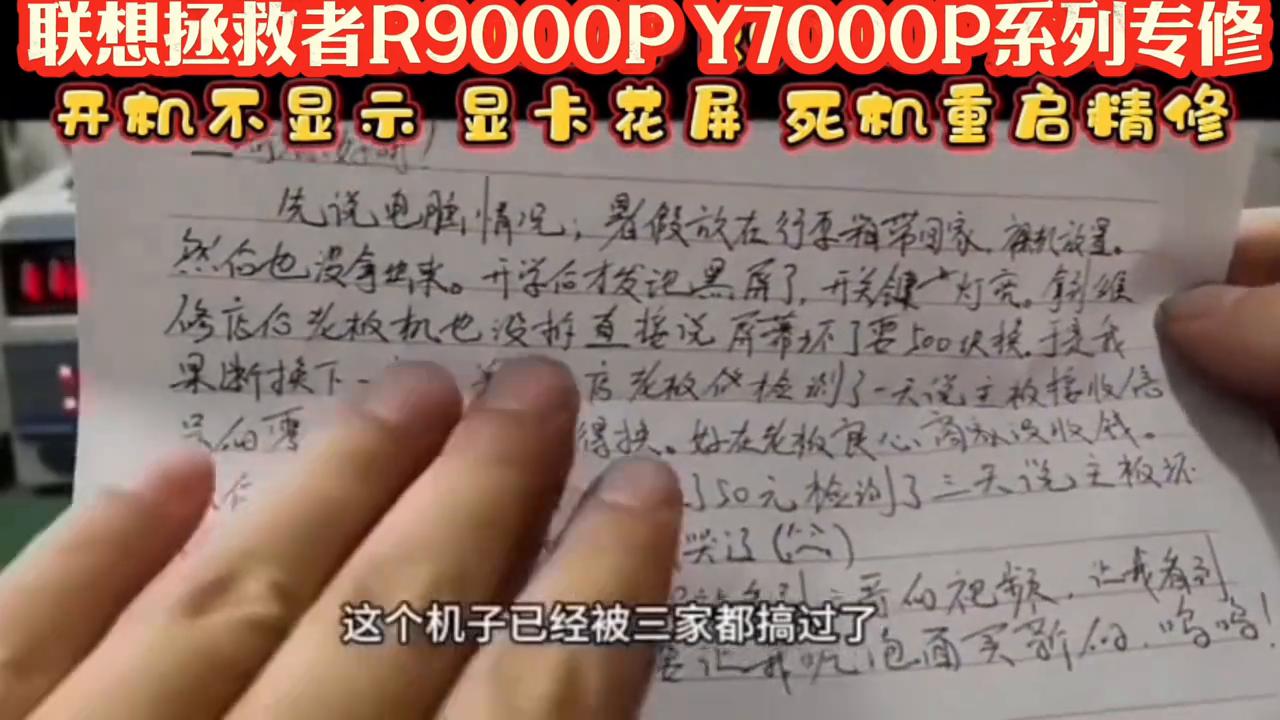 联想拯救者R9000P Y7000P系列专修
开机不显示 显卡花屏 死机重启精修
先说电脑情况；暑假放在行李箱带回家，裸机放置。
然后也没拿出来。开学后才发现黑屏了，开关键灯亮。拿到维
修店后老板机也没拆直接说屏幕坏了要500块换，于是我
果断换下一 店老板检测了一天说主板接收信
号的 得换。好在老板良心商家没收钱。
了50元检测了三天说主板坏
哭了
哥的视频，让我看到
让我吃泡面买新的，呜呜！
这个机子已经被三家都搞过了